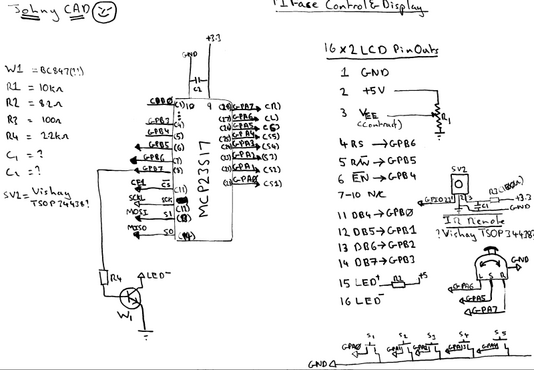 Johny CAD
Phase Control & Display
W1 = BC847(?!)
R1 = 10kΩ
R2 = 82Ω
R3 = 100Ω
R4 = 22kΩ
C1 = ?
C2 = ?
SV2 = Vishay
TSOP34438?
+3.3
GND
C2
10
9
MCP23S17
GPB7
GPB4
GPB5
GPB6
GPB7
CE1
CS
SCK
MOSI
SI
MISO
SO
(1)
(4)
(5)
(6)
(7)
(8)
(11)
GPA7
GPA6
GPA5
GPA4
GPA3
GPA2
GPA1
GPA0
(R)
(L)
(S1)
R4
LED-
W1
16x2 LCD PinOuts
1 GND
2 +5V
3 VEE
(Contrast)
R1
4 RS → GPB6
5 R/W → GPB5
6 EN → GPB4
7-10 N/C
11 DB4 → GPB0
12 DB5 → GPB1
13 DB6 → GPB2
14 DB7 → GPB3
15 LED+ R2 +5
16 LED-
SV2
1 2 3
+3.3
C1
GND
IR Remote
?Vishay TSOP34438?
GND
L S R
GPA6
GPA5
GPA7
S1 S2 S3 S4 S5
GPA0
GND